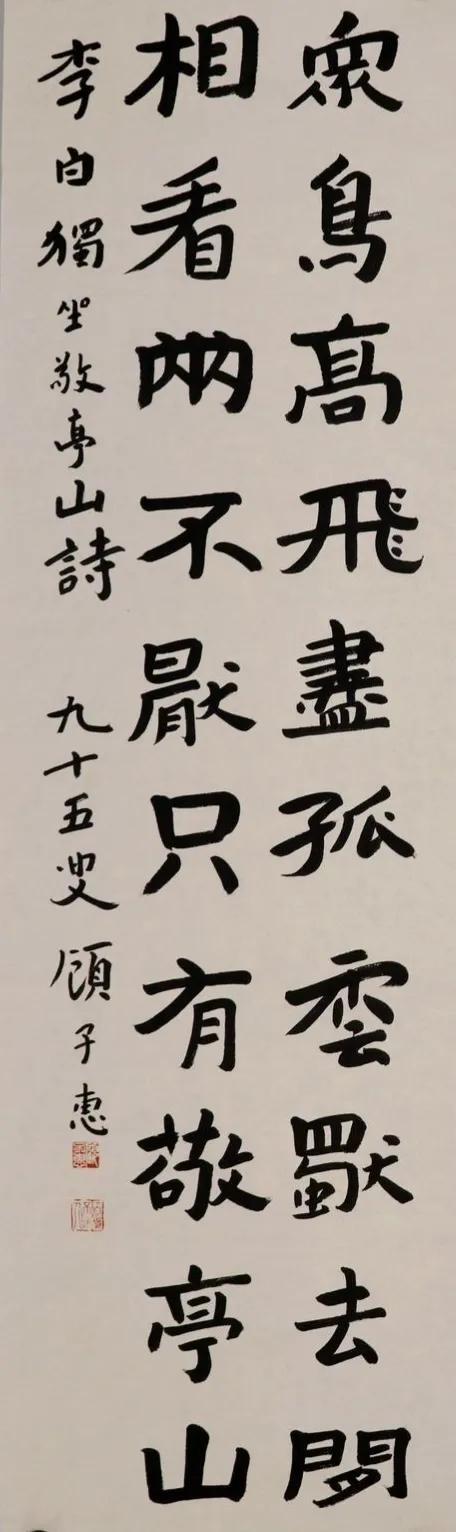 眾鳥高飛盡孤雲獨去閒
相看兩不厭只有敬亭山
李白獨坐敬亭山詩 九十五叟 顧子惠